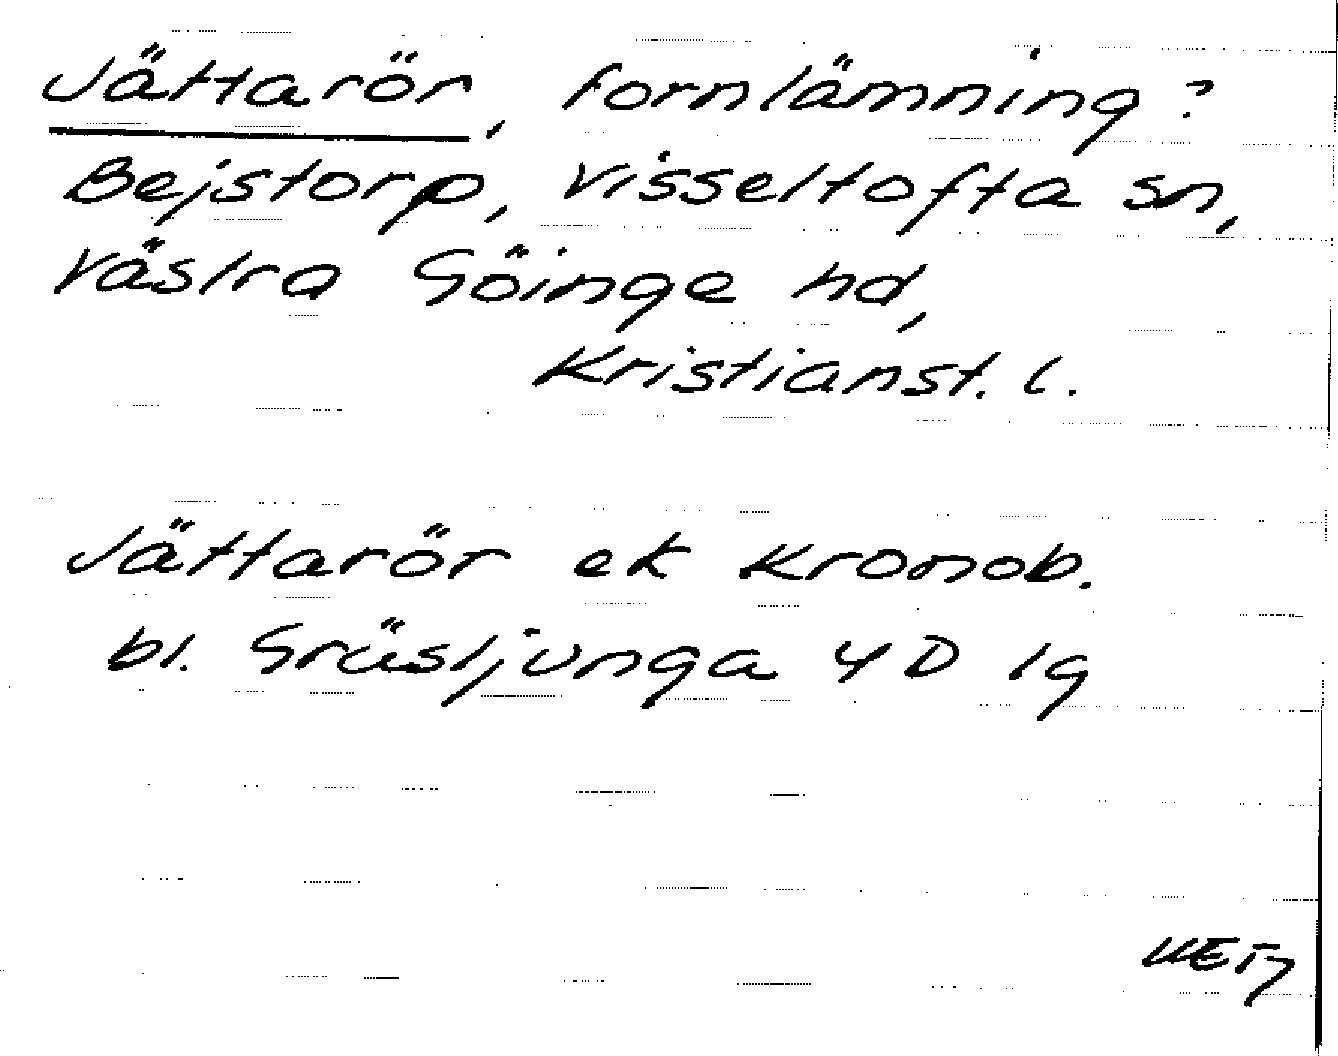 Jättarör, fornlämning?
Bejstorp, Visseltofta sn,
Västra Göinge hd,
Kristianst. l.
Jättarör ek Kronob.
bl. Gräsljunga 4D 1g